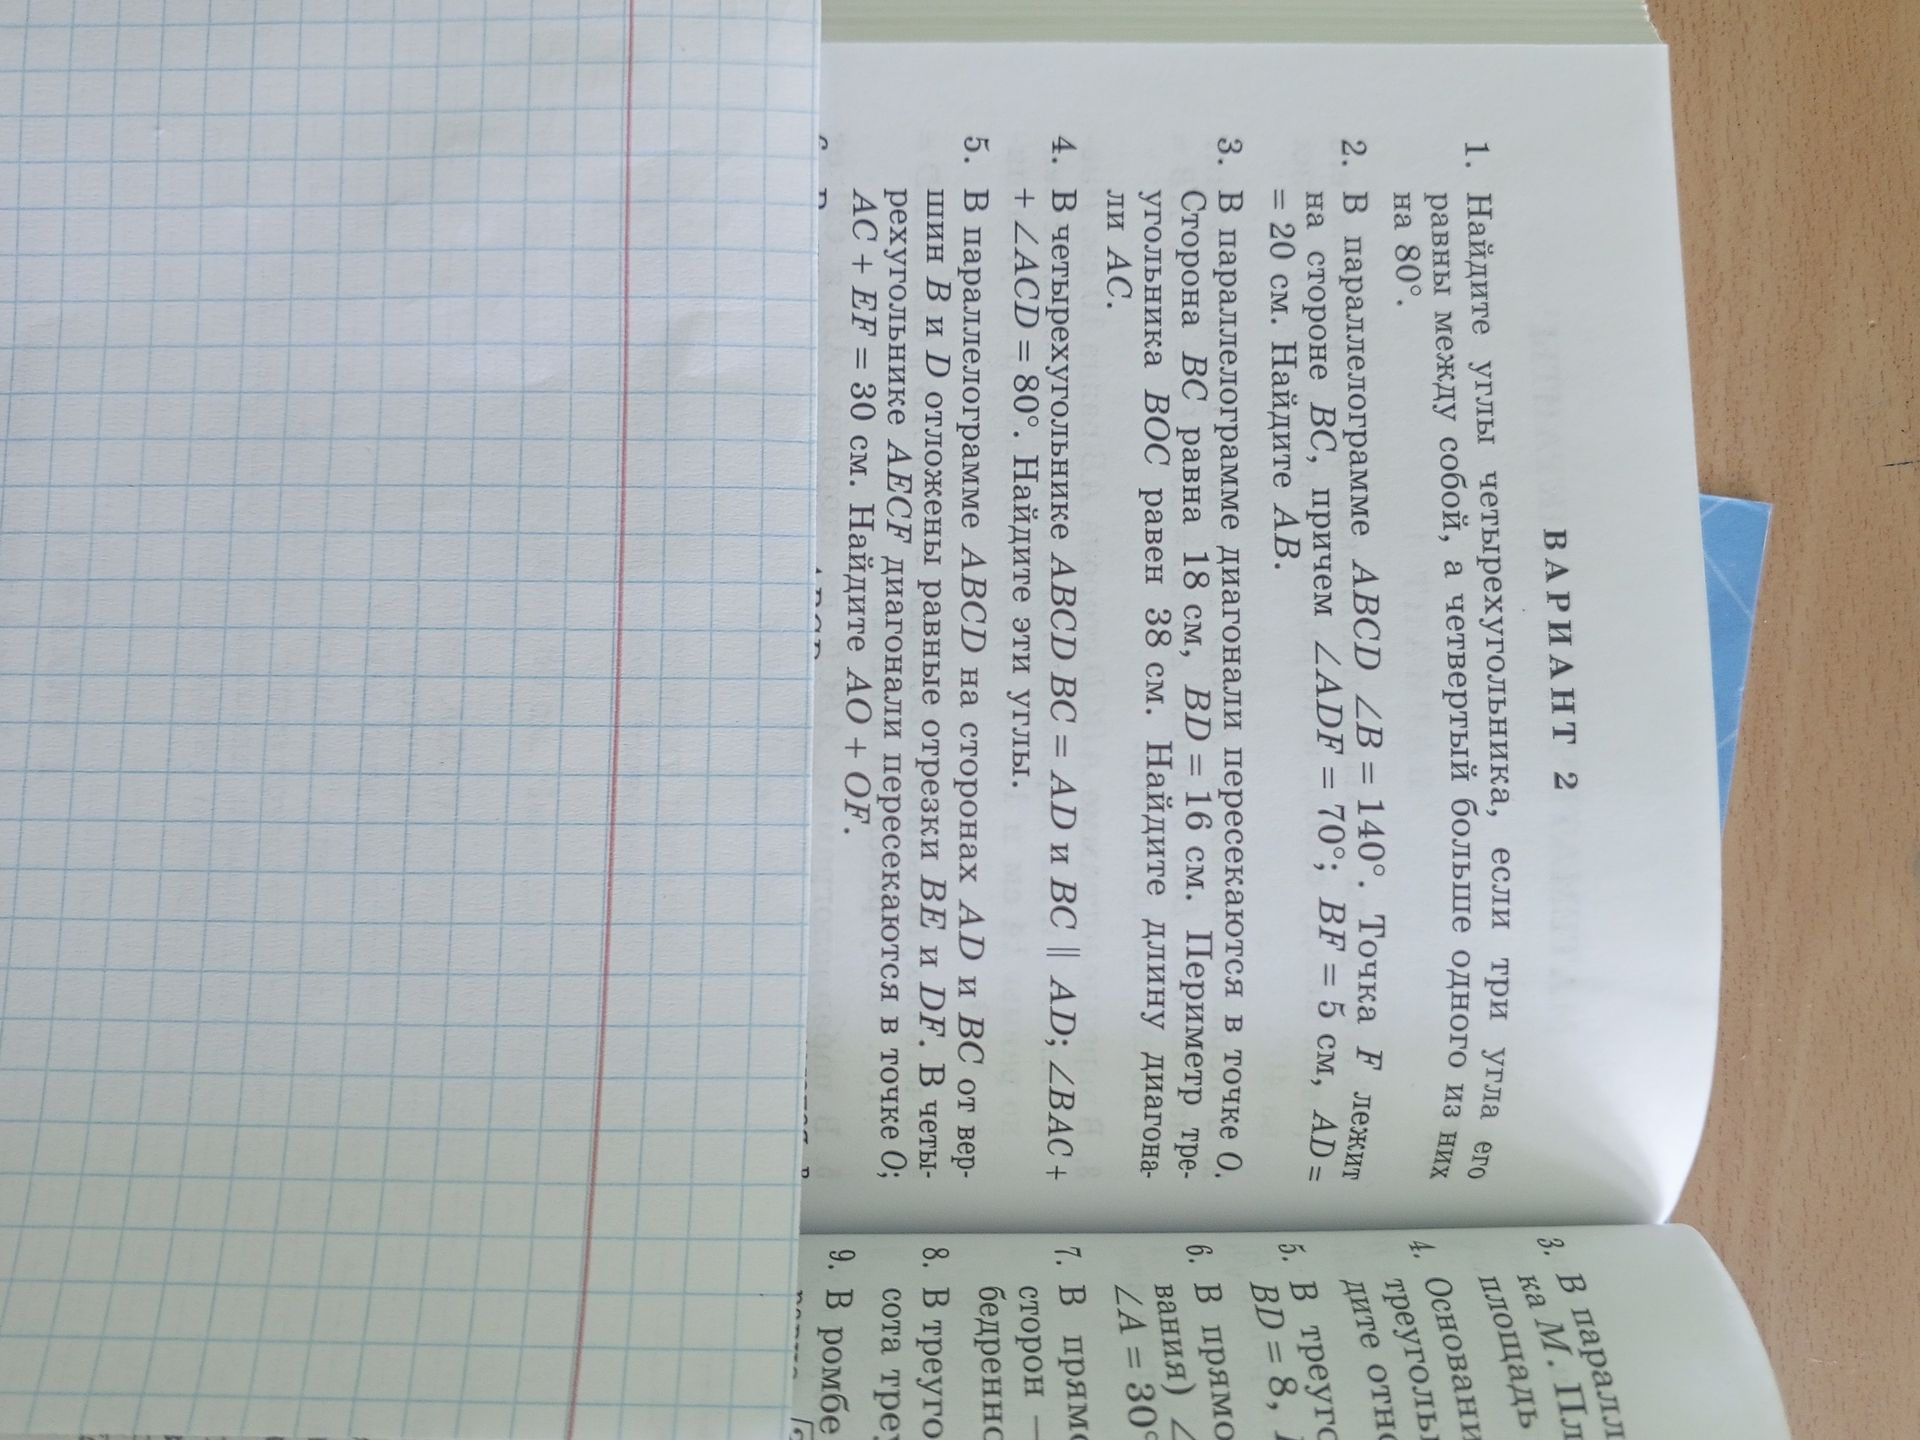 ВАРИАНТ 2
1. Найдите углы четырехугольника, если три угла его
равны между собой, а четвертый больше одного из них
на 80°.
2. В параллелограмме ABCD ∠B = 140°. Точка F лежит
на стороне BC, причем ∠ADF = 70°; BF = 5 см, AD =
= 20 см. Найдите AB.
3. В параллелограмме диагонали пересекаются в точке O.
Сторона BC равна 18 см, BD = 16 см. Периметр тре-
угольника BOC равен 38 см. Найдите длину диагона-
ли AC.
4. В четырехугольнике ABCD BC = AD и BC ∥ AD; ∠BAC +
+ ∠ACD = 80°. Найдите эти углы.
5. В параллелограмме ABCD на сторонах AD и BC от вер-
шин B и D отложены равные отрезки BE и DF. В четы-
рехугольнике AECF диагонали пересекаются в точке O;
AC + EF = 30 см. Найдите AO + OF.
3. В паралл
ка M. Пл
площадь
4. Основани
треуголь
дите отно
5. В треуго
BD = 8,
6. В прямо
вания) ∠
∠A = 30°
7. В прямо
сторон —
бедренно
8. В треуго
сота тре
9. В ромбе